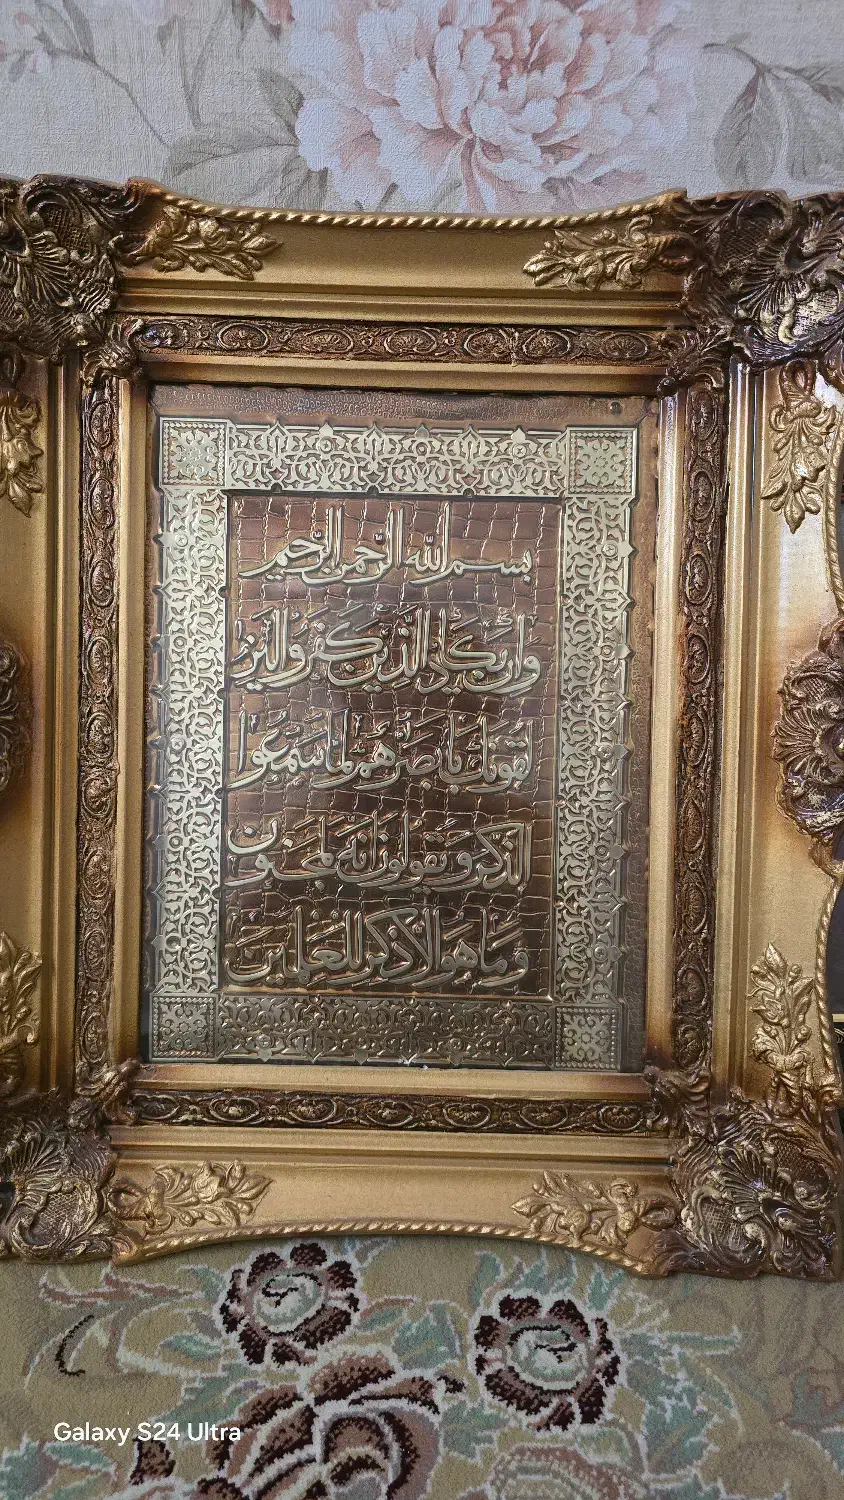 بسم الله الرحمن الرحيم
وان يكاد الذين كفروا ليز
لقونك بابصرهم لما سمعوا
الذكر و يقولون انه لمجنون
وما هو الا ذكر للعلمين
Galaxy S24 Ultra